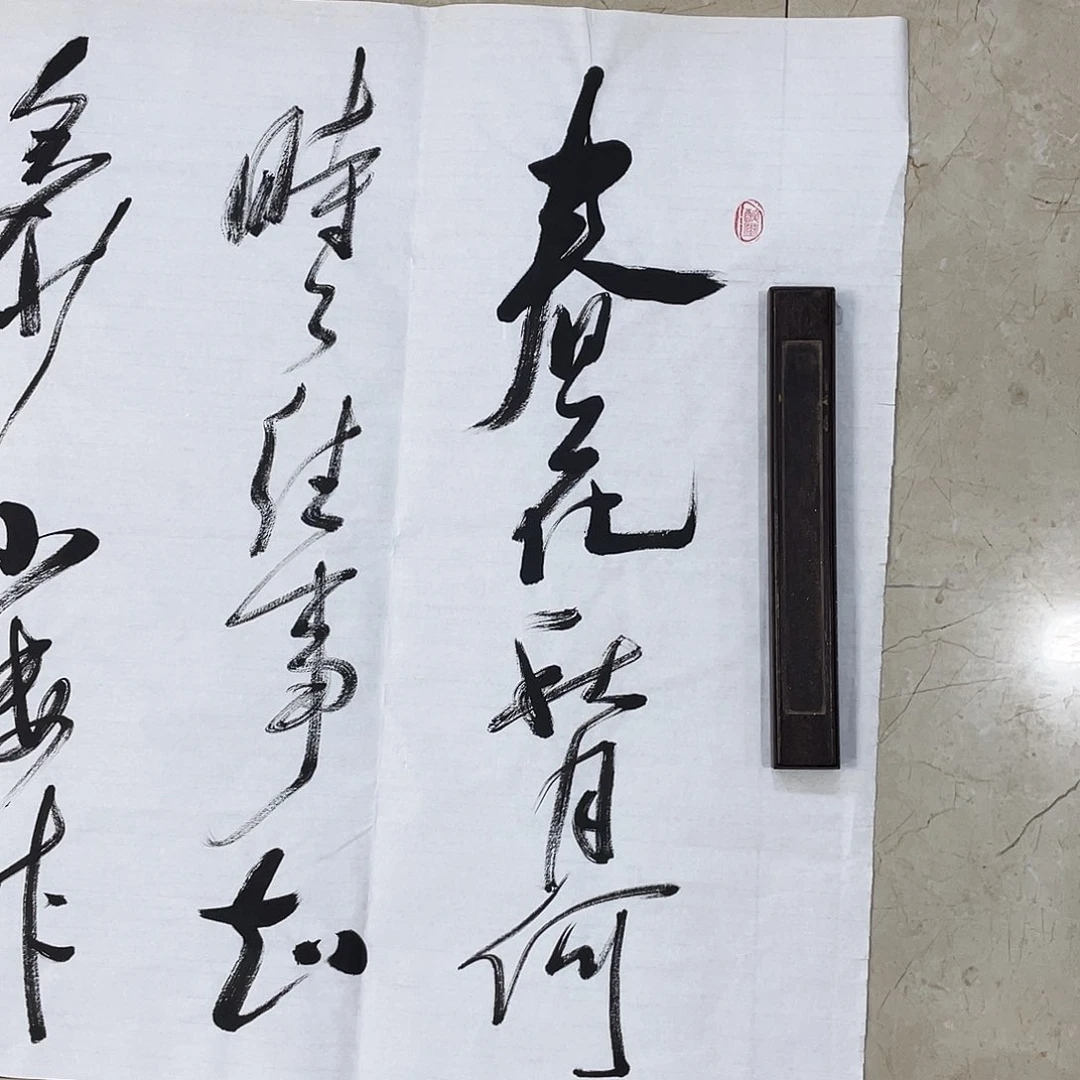 春花秋月何
時了往事知
多少小楼昨